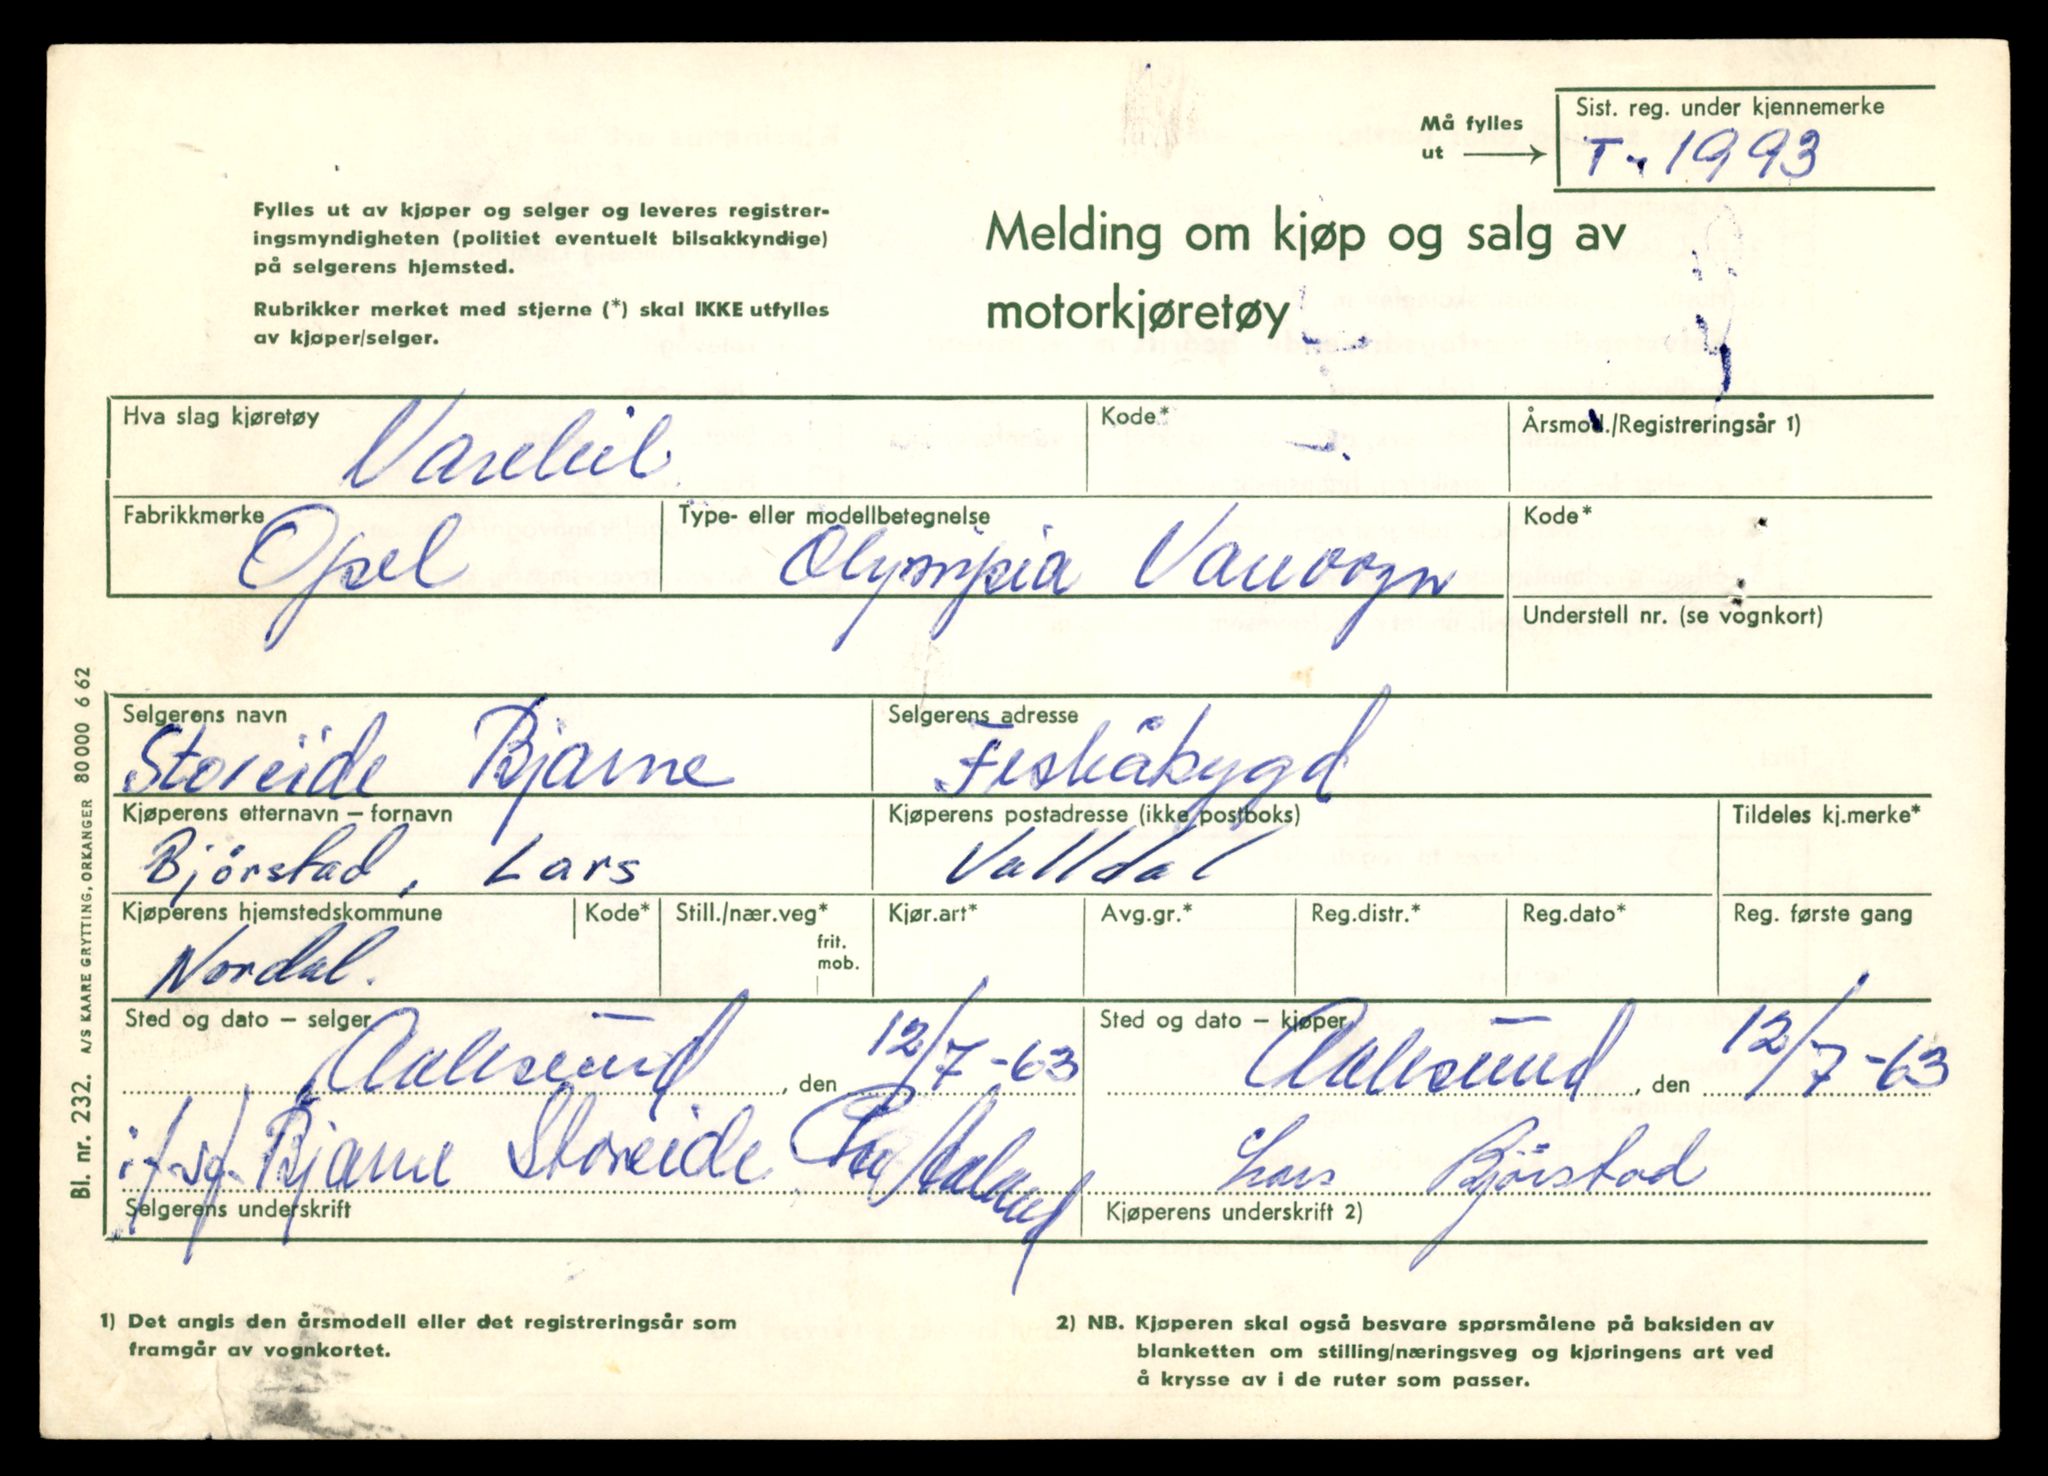 Må fylles
ut
Sist. reg. under kjennemerke
T-1993
Fylles ut av kjøper og selger og leveres registrer-
ingsmyndigheten (politiet eventuelt bilsakkyndige)
på selgerens hjemsted.
Rubrikker merket med stjerne (*) skal IKKE utfylles
av kjøper/selger.
Melding om kjøp og salg av
motorkjøretøy
Hva slag kjøretøy
Varebil
Kode*
Årsmod./Registreringsår 1)
Fabrikkmerke
Opel
Type- eller modellbetegnelse
Olympia Varevogn
Kode*
Understell nr. (se vognkort)
Selgerens navn
Storeide Bjarne
Selgerens adresse
Fiskåbygd
Kjøperens etternavn – fornavn
Bjørstad, Lars
Kjøperens postadresse (ikke postboks)
Valldal
Tildeles kj.merke*
Kjøperens hjemstedskommune
Nordal.
Kode*
Still./nær.veg*
frit.
mob.
Kjør.art*
Avg.gr.*
Reg.distr.*
Reg.dato*
Reg. første gang
Sted og dato – selger
Aalesund, den 12/7-63
Sted og dato – kjøper
Aalesund, den 12/7-63
Bjarne Storeide
Selgerens underskrift
Lars Bjørstad
Kjøperens underskrift 2)
Bl. nr. 232. A/S KAARE GRYTTING, ORKANGER 80000 6 62
1) Det angis den årsmodell eller det registreringsår som
framgår av vognkortet.
2) NB. Kjøperen skal også besvare spørsmålene på baksiden av
blanketten om stilling/næringsveg og kjøringens art ved
å krysse av i de ruter som passer.